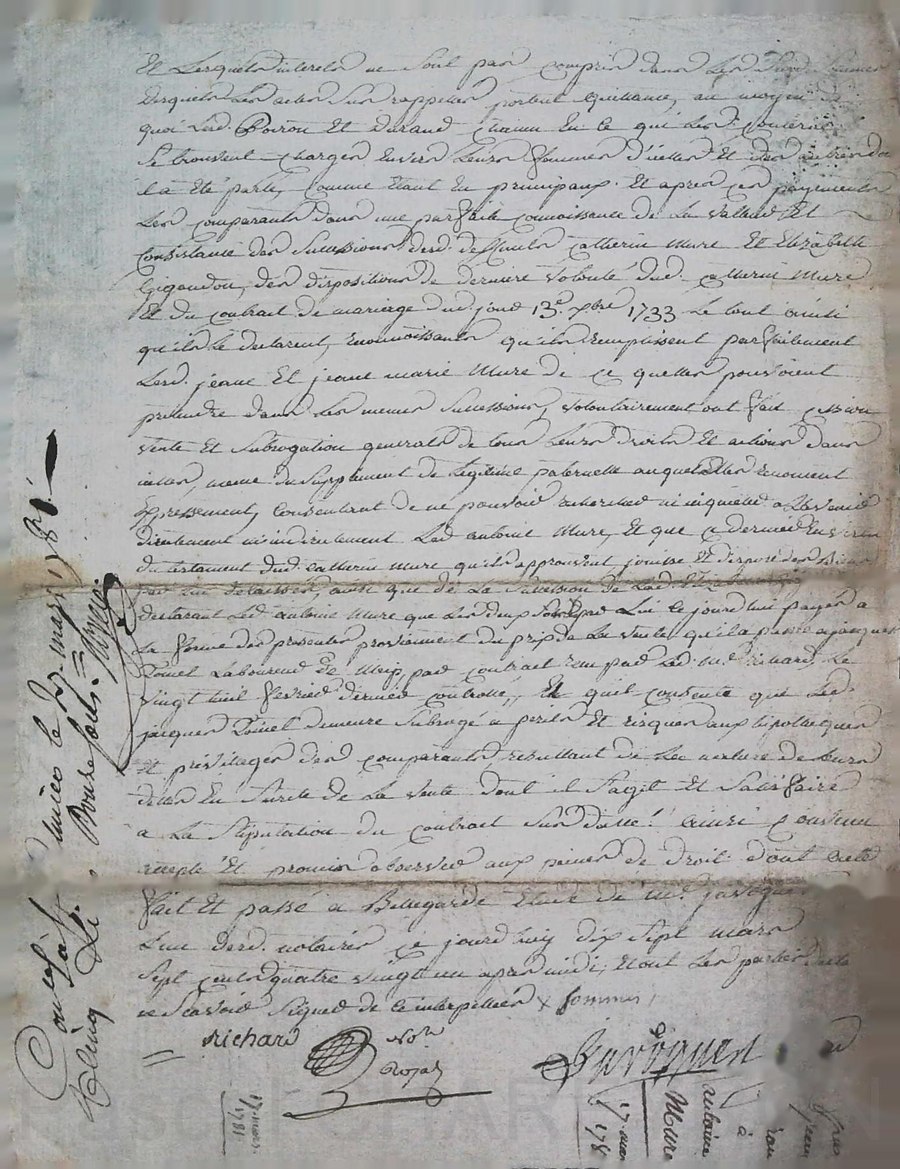 Et Lesquels interets ne sont pas compris dans Les Susd. Sommes
desquels Les actes Sus rappellés portent quittance, au moyen de
quoi Lesd. Poiron Et durand chacun En ce qui Les Concerne
Se trouvent charges Envers Leurs femmes d'icelles Et des autres dont
il a été parlé, comme étant En principaux. Et apres ces payements
Les comparants dans une parfaite connoissance de La valleur Et
Consistance des Successions desd. defunts catherin mure Et Elizabeth
Gigandon, des dispositions de derniere volonté dud. catherin Mure
Et du contrait de mariage dud. jour 13e xbre 1733 Le tout ainsi
qu'ils Le declarent, reconnoissants qu'ils remplissent parfaitement
Lesd. jeane Et jeane marie Mure de ce quelles pouvoient
pretendre dans Les memes Successions, volontairement ont fait cession
vente Et Subrogation generale de tous Leurs droits Et actions dans
icelles, meme du Supplement de Legitime paternelle auquel Elles renoncent
Expressement, consentant de ne pouvoir rechercher ni inquieter a L'avenir
directement ni indirectement Led. antoine Mure, Et que ce dernier En vertu
du testament dud. catherin mure qu'ils approuvent jouisse Et dispose des Biens
par lui delaisses, ainsi que de La Succession de Lad. Elizabeth
declarant Led. antoine Mure que Les deux Sommes par Lui ce jourd'hui payés a
La forme des presentes proviennent du prix de La vente qu'il a passé a jacques
Poncet Laboureur de Meys par contrait reçu par Led. Me Richard Le
vingt huit fevrier dernier controllé, Et qu'il consente que Led.
jacques Poncet demeure Subrogé a perils Et risques aux hipotheques
Et privilleges des comparants resultant de La nature de Leurs
dettes En Sureté de La vente dont il S'agit Et Satisfaire
a La Stipulation du contrait Sus datté. ainsi convenu
accepté Et promis observer aux peines de droit. dont acte
fait Et passé a Bellegarde Etude de Me Jaroquen
L'un desd. notaires ce jourd'huy dix Sept mars
Sept cents quatre vingt un apres midi, Et ont Les parties declaré
ne Scavoir Signer de ce interpellés x sommés
Richard Nore
Royal
Jaroquen
17 mars
1781
17 mars
178
Mure
antoine
à
Controlé à
le 27 mars 1781
Reçu cinq Li.
Douze sols